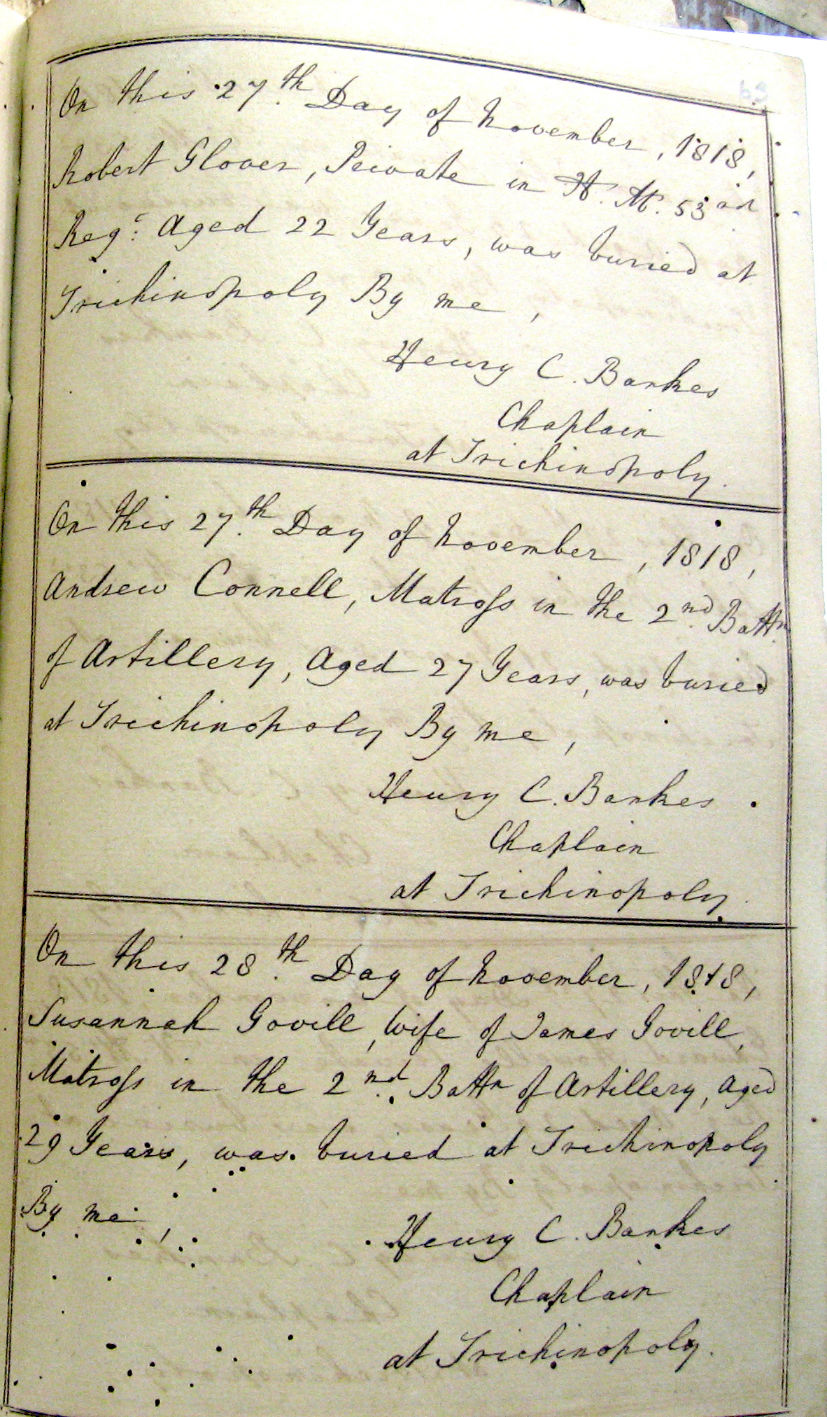 63
On this 27.th Day of November, 1818,
Robert Glover, Private in H. M. 53rd
Regt. Aged 22 Years, was buried at
Trichinopoly By me,
Henry C. Bankes
Chaplain
at Trichinopoly.
On this 27.th Day of November, 1818,
Andrew Connell, Matross in the 2nd Battn
of Artillery, Aged 27 Years, was buried
at Trichinopoly By me,
Henry C. Bankes
Chaplain
at Trichinopoly.
On this 28.th Day of November, 1818,
Susannah Govill, Wife of James Govill,
Matross in the 2nd Battn of Artillery, Aged
29 Years, was buried at Trichinopoly
By me,
Henry C. Bankes
Chaplain
at Trichinopoly.